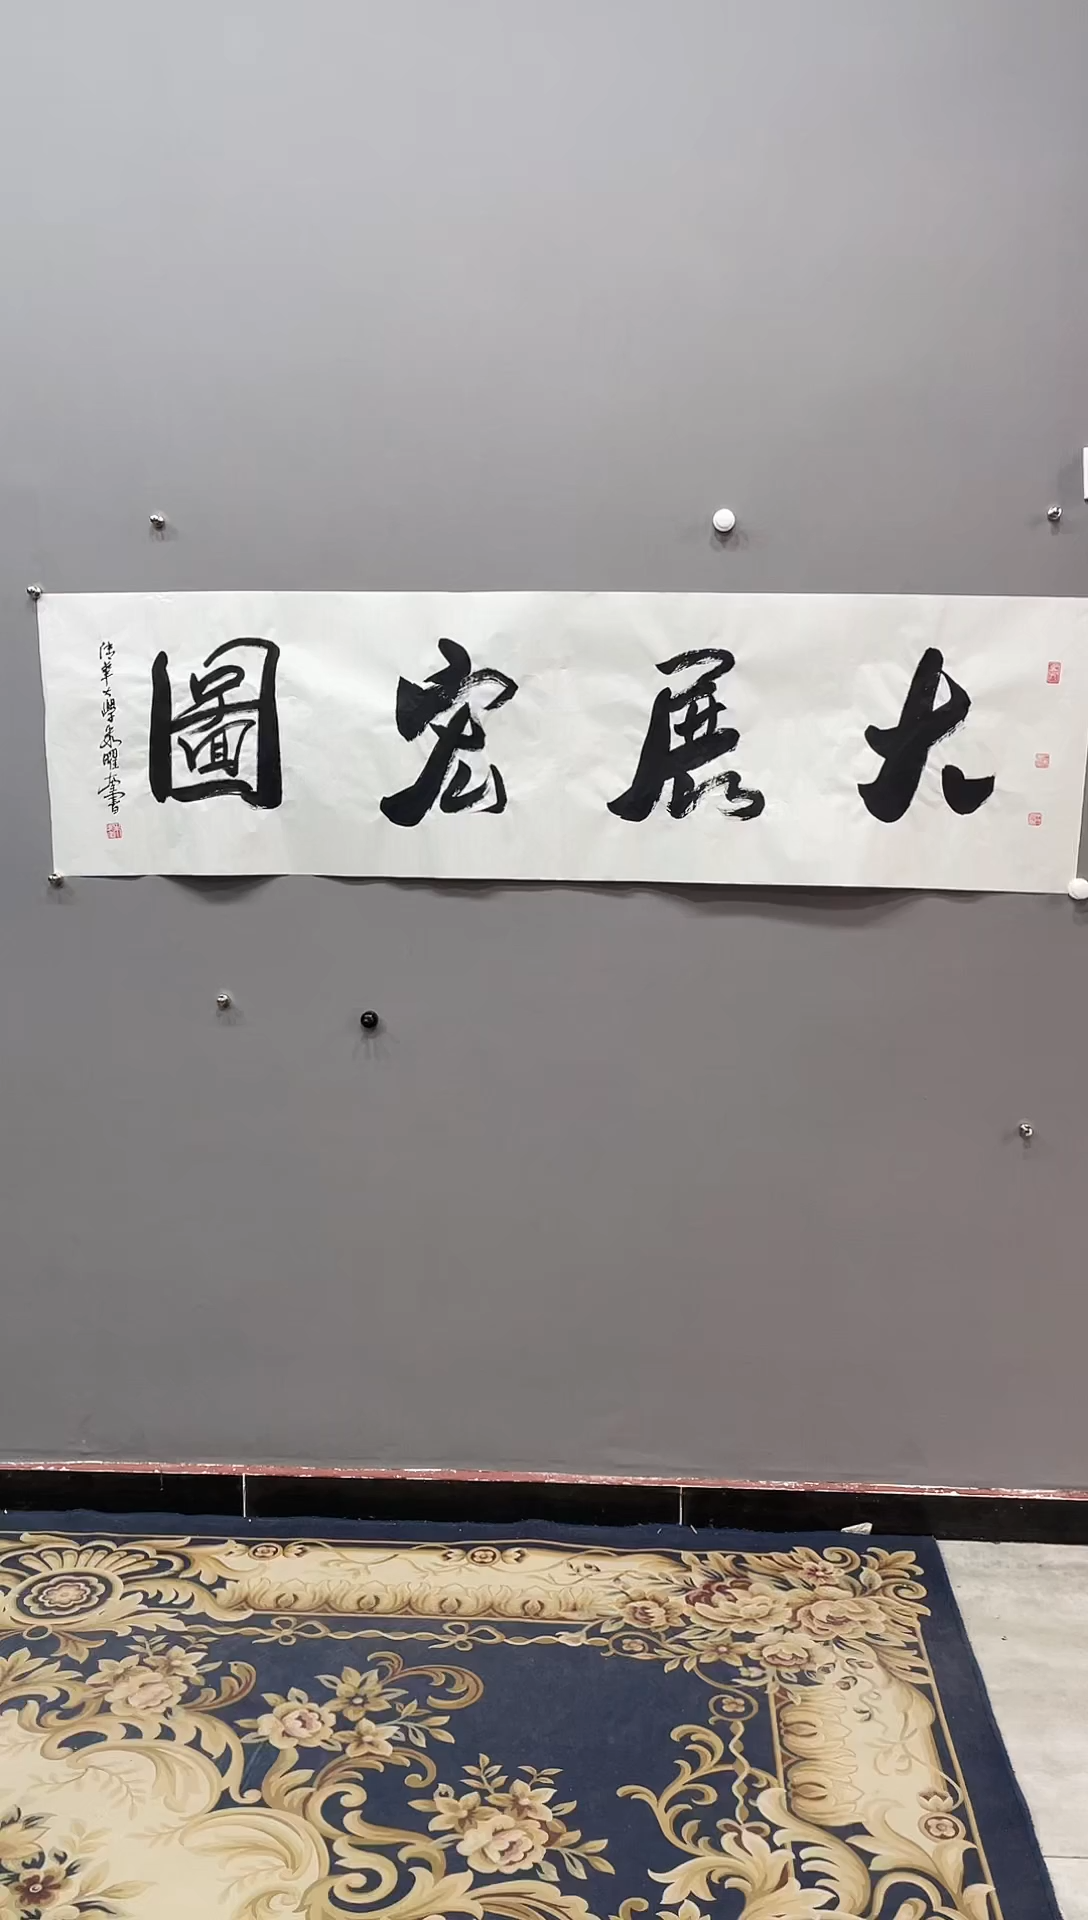 大展宏圖
清華大學秦曜書